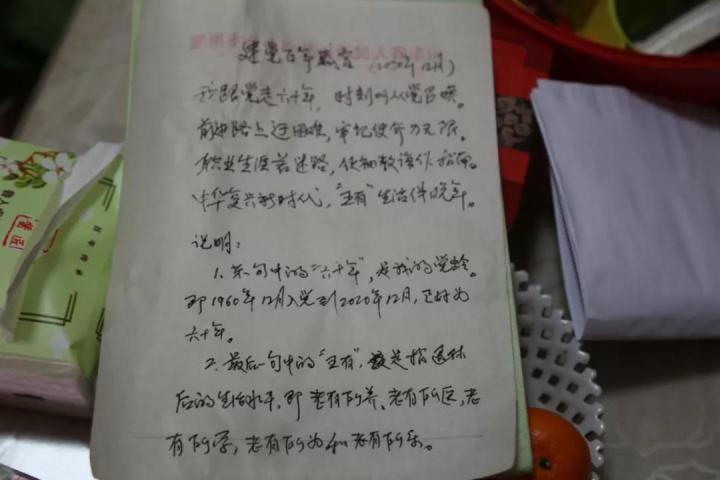 建党百年感言(2020年12月)
我跟党走六十年,时刻听从党召唤。
前进路上迂困难,牢记使命力无限。
职业生涯若迷路,使知教诲作指南。
中华复兴新时代,“五有”生活伴晚年。
说明:
1. 第一句中的“六十年”,是我的党龄。
即1960年12月入党到2020年12月,正好为
六十年。
2. 最后一句中的“五有”,是指退休
后的生活水平,即老有所养、老有所医,老
有所学,老有所为和老有所乐。